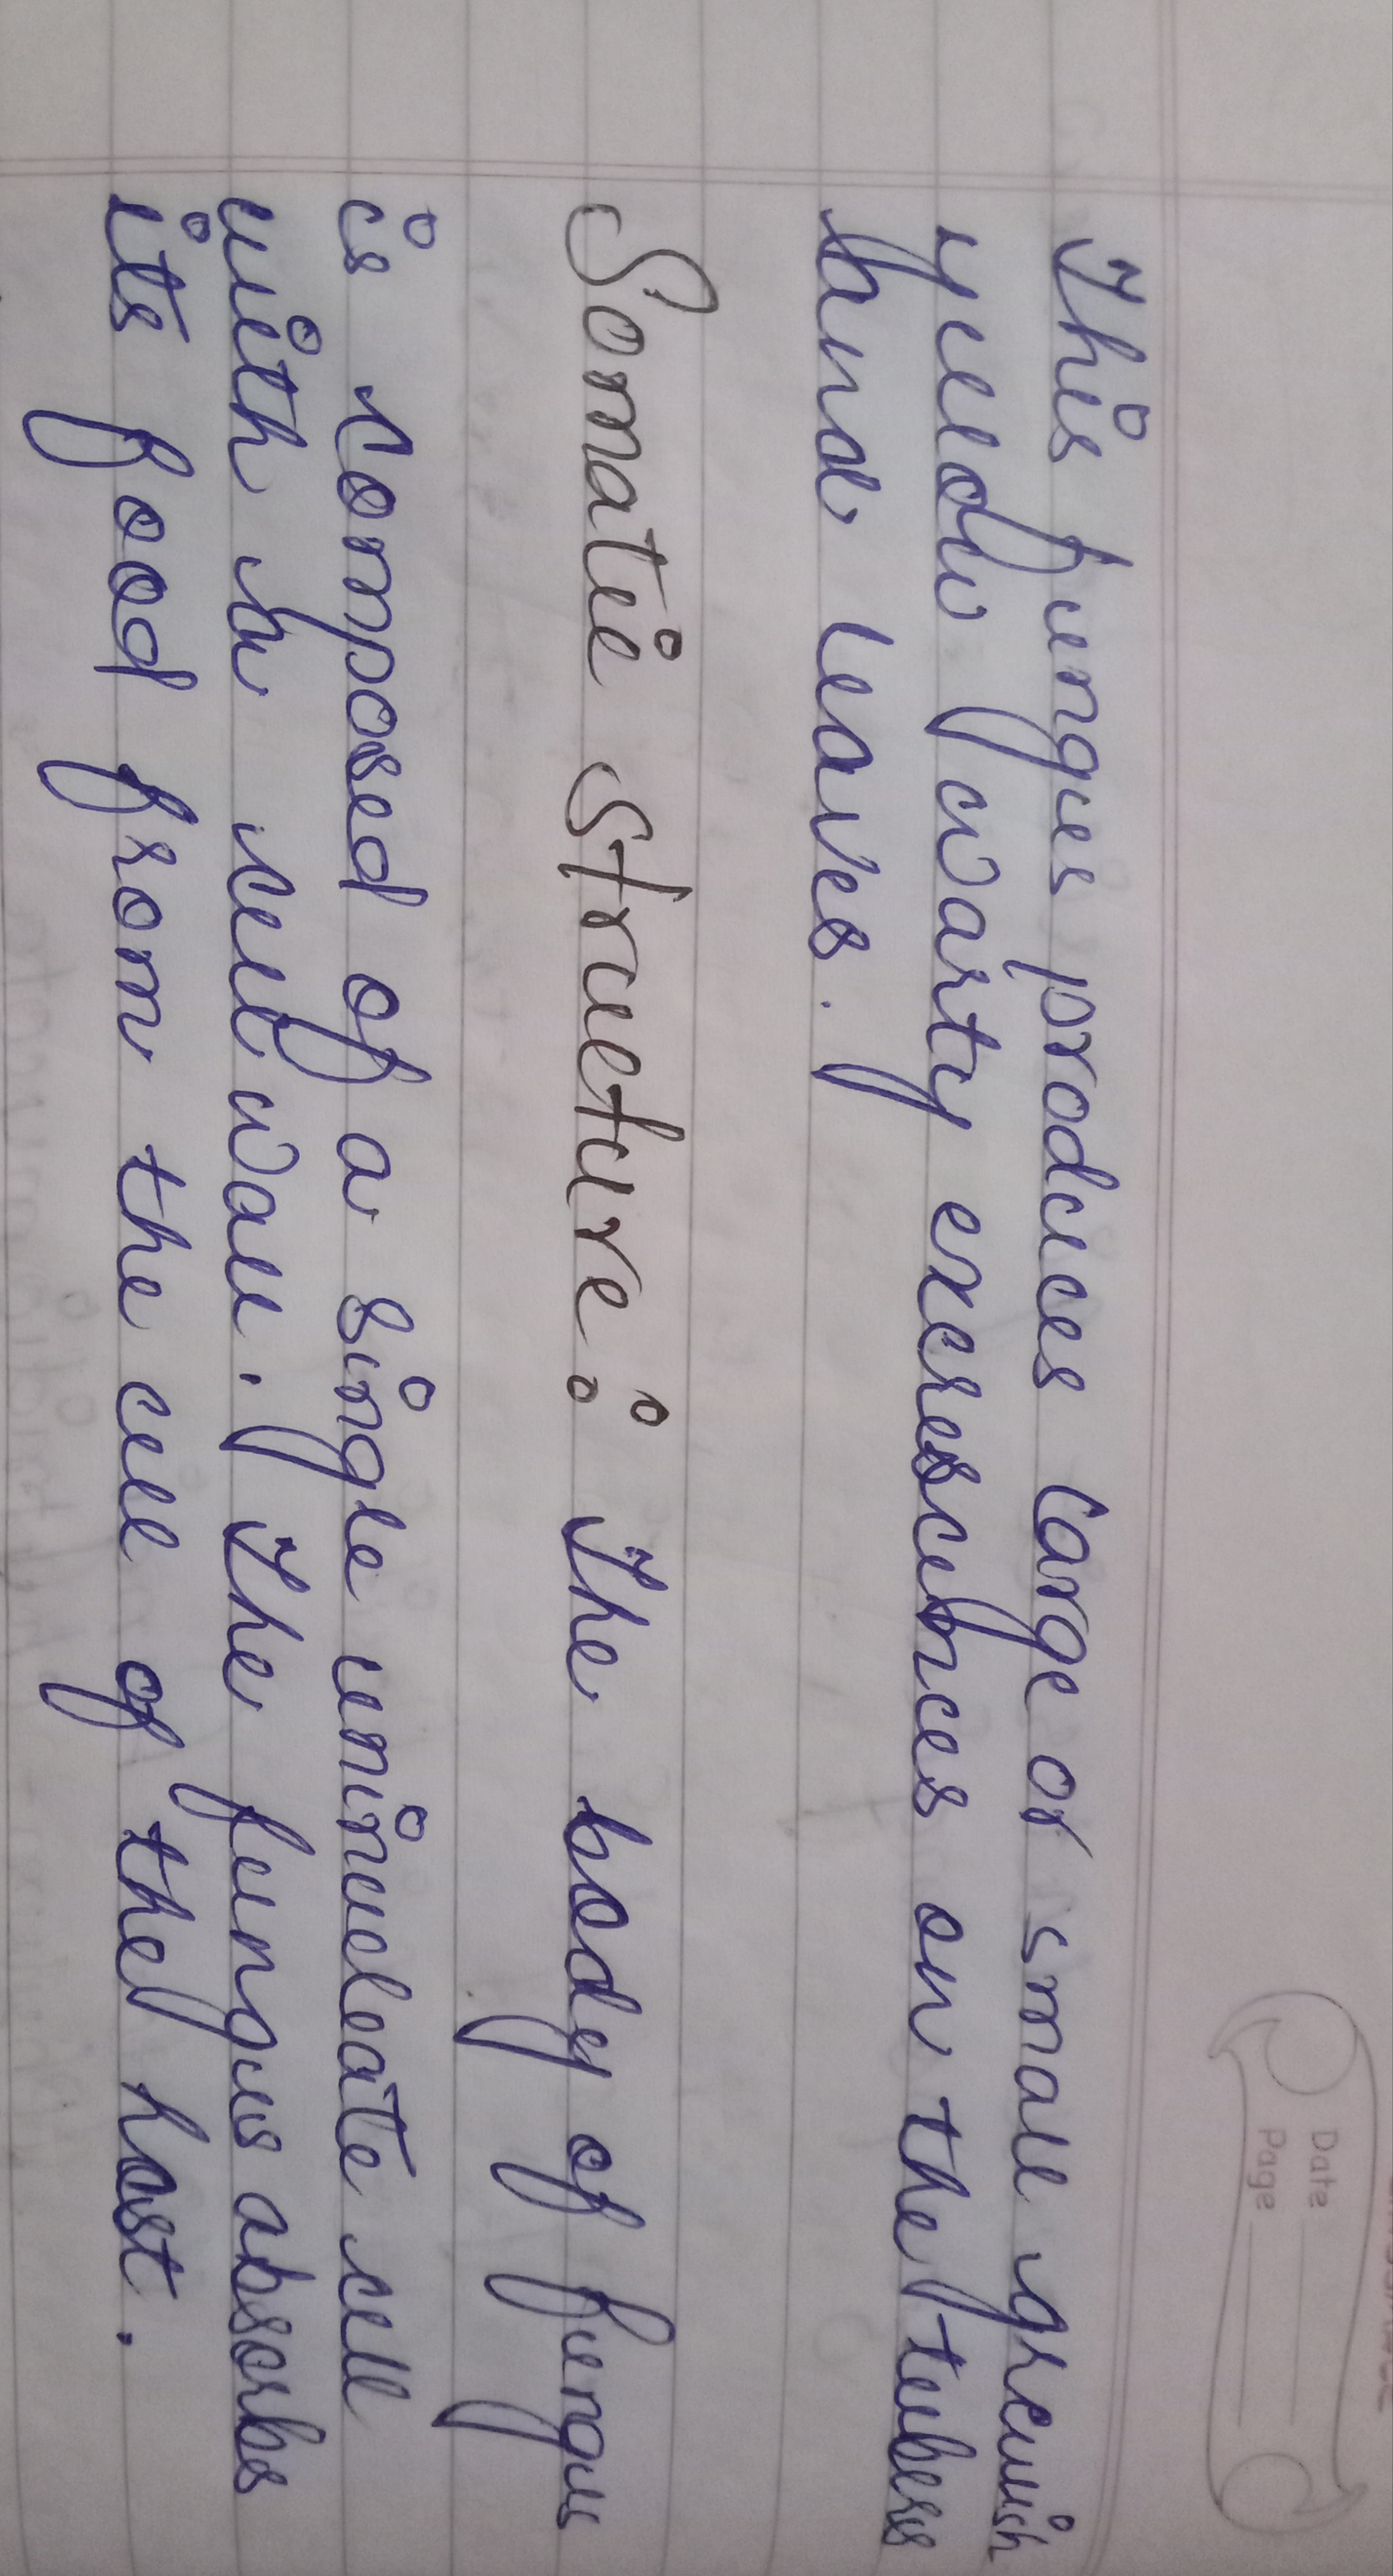 Date
Page
This fungus produces large or small greenish
yellow warty excrescences on the tubers
and leaves.
Somatic structure: The body of fungus
is composed of a single uninucleate cell
with a cell wall. The fungus absorbs
its food from the cell of the host.